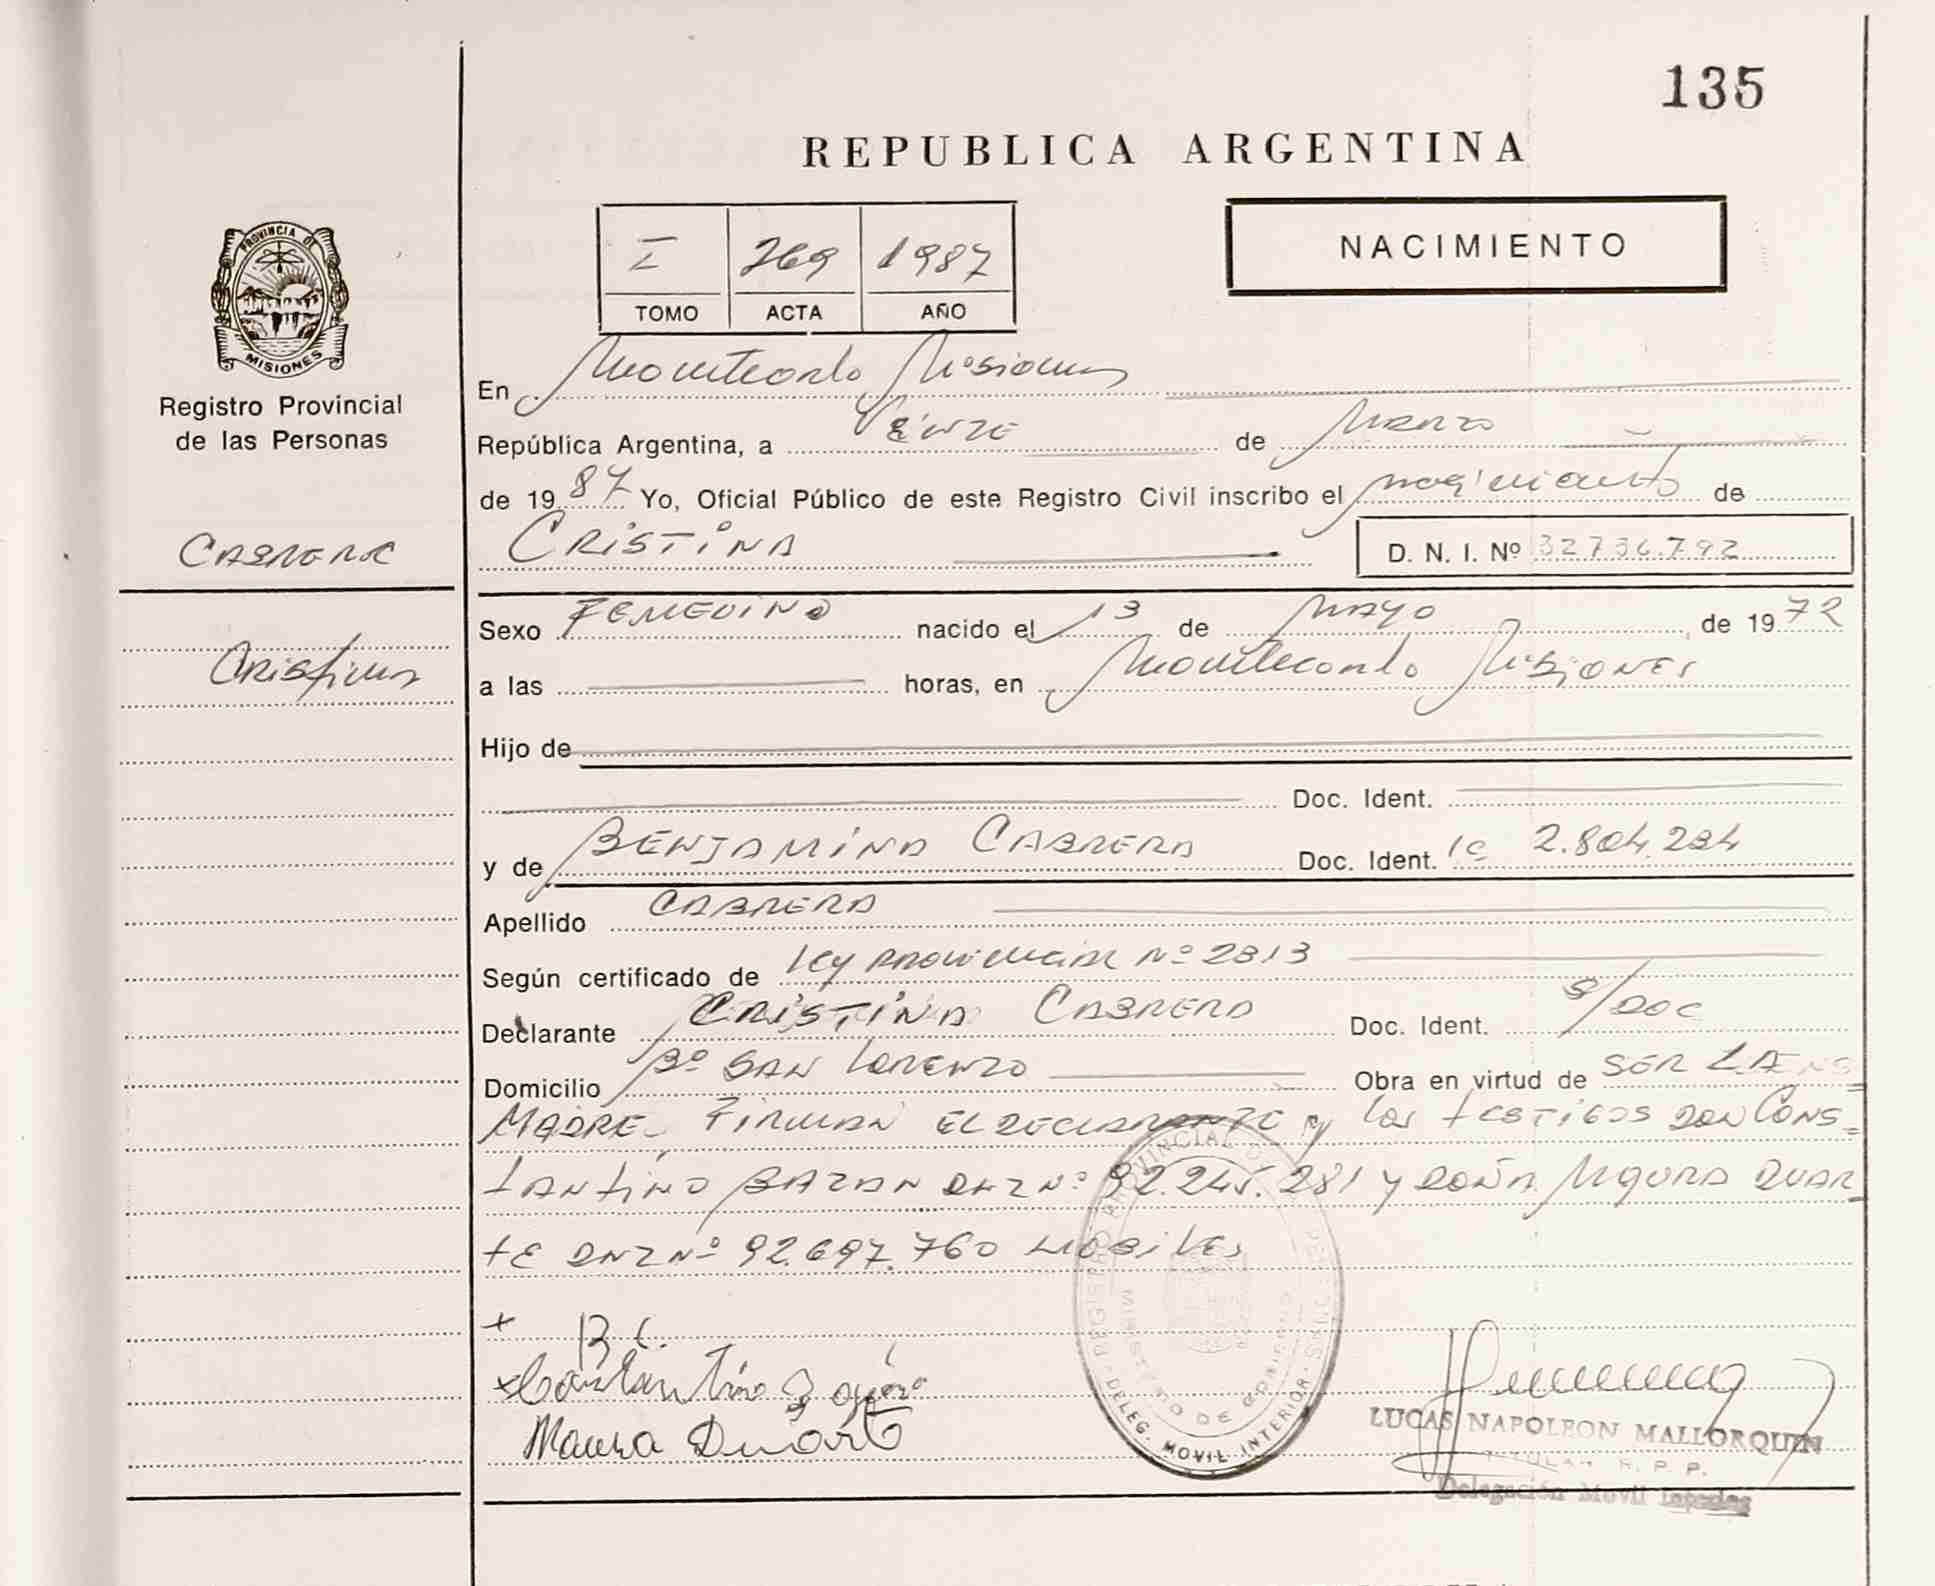 135
REPUBLICA ARGENTINA
I 269 1987
TOMO ACTA AÑO
NACIMIENTO
PROVINCIA DE
MISIONES
Registro Provincial
de las Personas
CABRERA
Cristina
En Montecarlo Misiones
República Argentina, a Veinte de Marzo
de 1987 Yo, Oficial Público de este Registro Civil inscribo el nacimiento de
CRISTINA D. N. I. Nº 32736.792
Sexo FEMENINO nacido el 13 de MAYO de 1972
a las horas, en Montecarlo MISIONES
Hijo de
Doc. Ident.
y de BENJAMINA CABRERA Doc. Ident. lc 2.804.284
Apellido CABRERA
Según certificado de Ley PROVINCIAL Nº 2813
Declarante CRISTINA CABRERA Doc. Ident. S/DOC
Domicilio Bº SAN LORENZO Obra en virtud de SER LA
MADRE FIRMAN EL DECLARANTE y los TESTIGOS DON CONS_
TANTINO BAZAN DNI Nº 92.245.281 y DOÑA MAURA DUAR_
TE DNI Nº 92.697.760 HABILES
+ B.C.
x Constantino
Maura Duarte
REGISTRO PROVINCIAL DE
MINISTERIO DE GOBIERNO
DELEG. MOVIL INTERIOR
LUCAS NAPOLEON MALLORQUIN
TITULAR R. P. P.
Delegación Movil